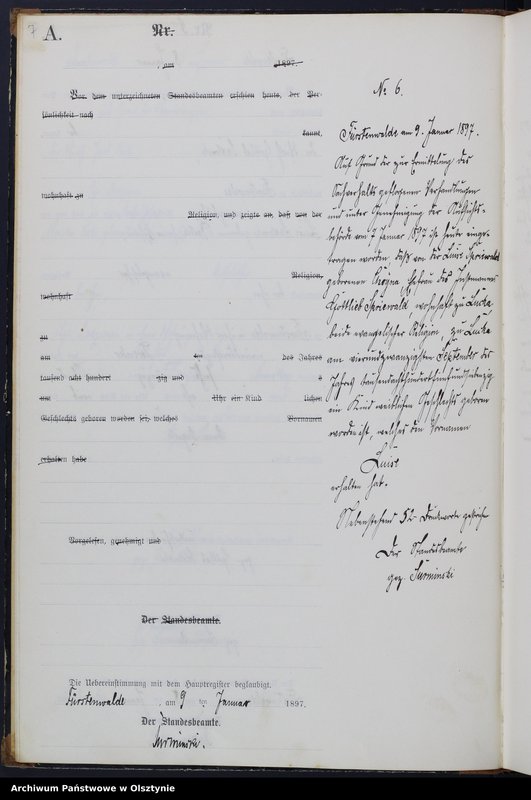 7
A.
Nr.
am 1897.
Vor dem unterzeichneten Standesbeamten erschien heute, der Per-
sönlichkeit nach
kannt,
wohnhaft zu
Religion, und zeigte an, daß von der
Religion,
wohnhaft
zu
am ten des Jahres
tausend acht hundert zig und
um Uhr ein Kind lichen
Geschlechts geboren worden sei, welches Vornamen
erhalten habe
Vorgelesen, genehmigt und
Der Standesbeamte.
Die Uebereinstimmung mit dem Hauptregister beglaubigt.
Fürstenwalde, am 9 ten Januar 1897.
Der Standesbeamte.
Surminski.
No 6.
Fürstenwalde am 9. Januar 1897.
Auf Grund der zur Ermittelung des
Sachverhalts gepflogenen Verhandlungen
und unter Genehmigung der Aufsichts-
behörde vom 7 Januar 1897 ist heute einge-
tragen worden, daß von der Luise
geborenen Ehefrau des Instmanns
Gottlieb wohnhaft zu Lucka,
beide evangelischer Religion, zu Lucka
am vierundzwanzigsten September des
Jahres tausendachthundert
ein Kind weiblichen Geschlechts geboren
worden ist, welches den Vornamen
Luise
erhalten hat.
Nebenstehend 52 Druckworte gestrichen
Der Standesbeamte
gez. Surminski
Archiwum Państwowe w Olsztynie